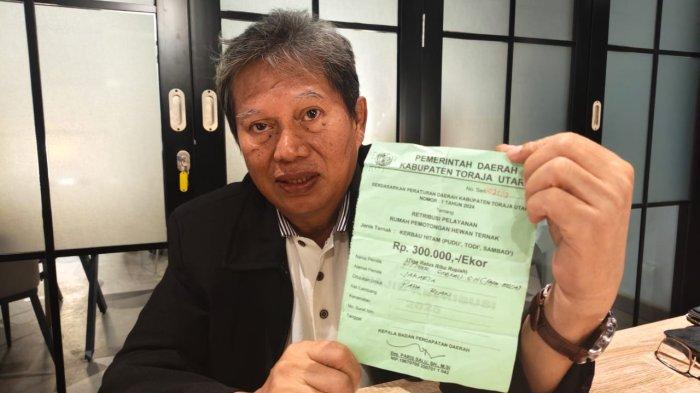 PEMERINTAH DAERAH
KABUPATEN TORAJA UTAR
No. Seri
BERDASARKAN PERATURAN DAERAH KABUPATEN TORAJA UTAR
NOMOR : 1 TAHUN 2024
Tentang
RETRIBUSI PELAYANAN
RUMAH PEMOTONGAN HEWAN TERNAK
Jenis Ternak : KERBAU HITAM (PUDU', TODI', SAMBAO')
Rp. 300.000,-/Ekor
(Tiga Ratus Ribu Rupiah)
Nama Pemilik
Alamat Pemilik
JAKARTA
Kec/Lembang
Kecamatan
No. Surat Izin
Tanggal
2025
KEPALA BADAN PENDAPATAN DAERAH